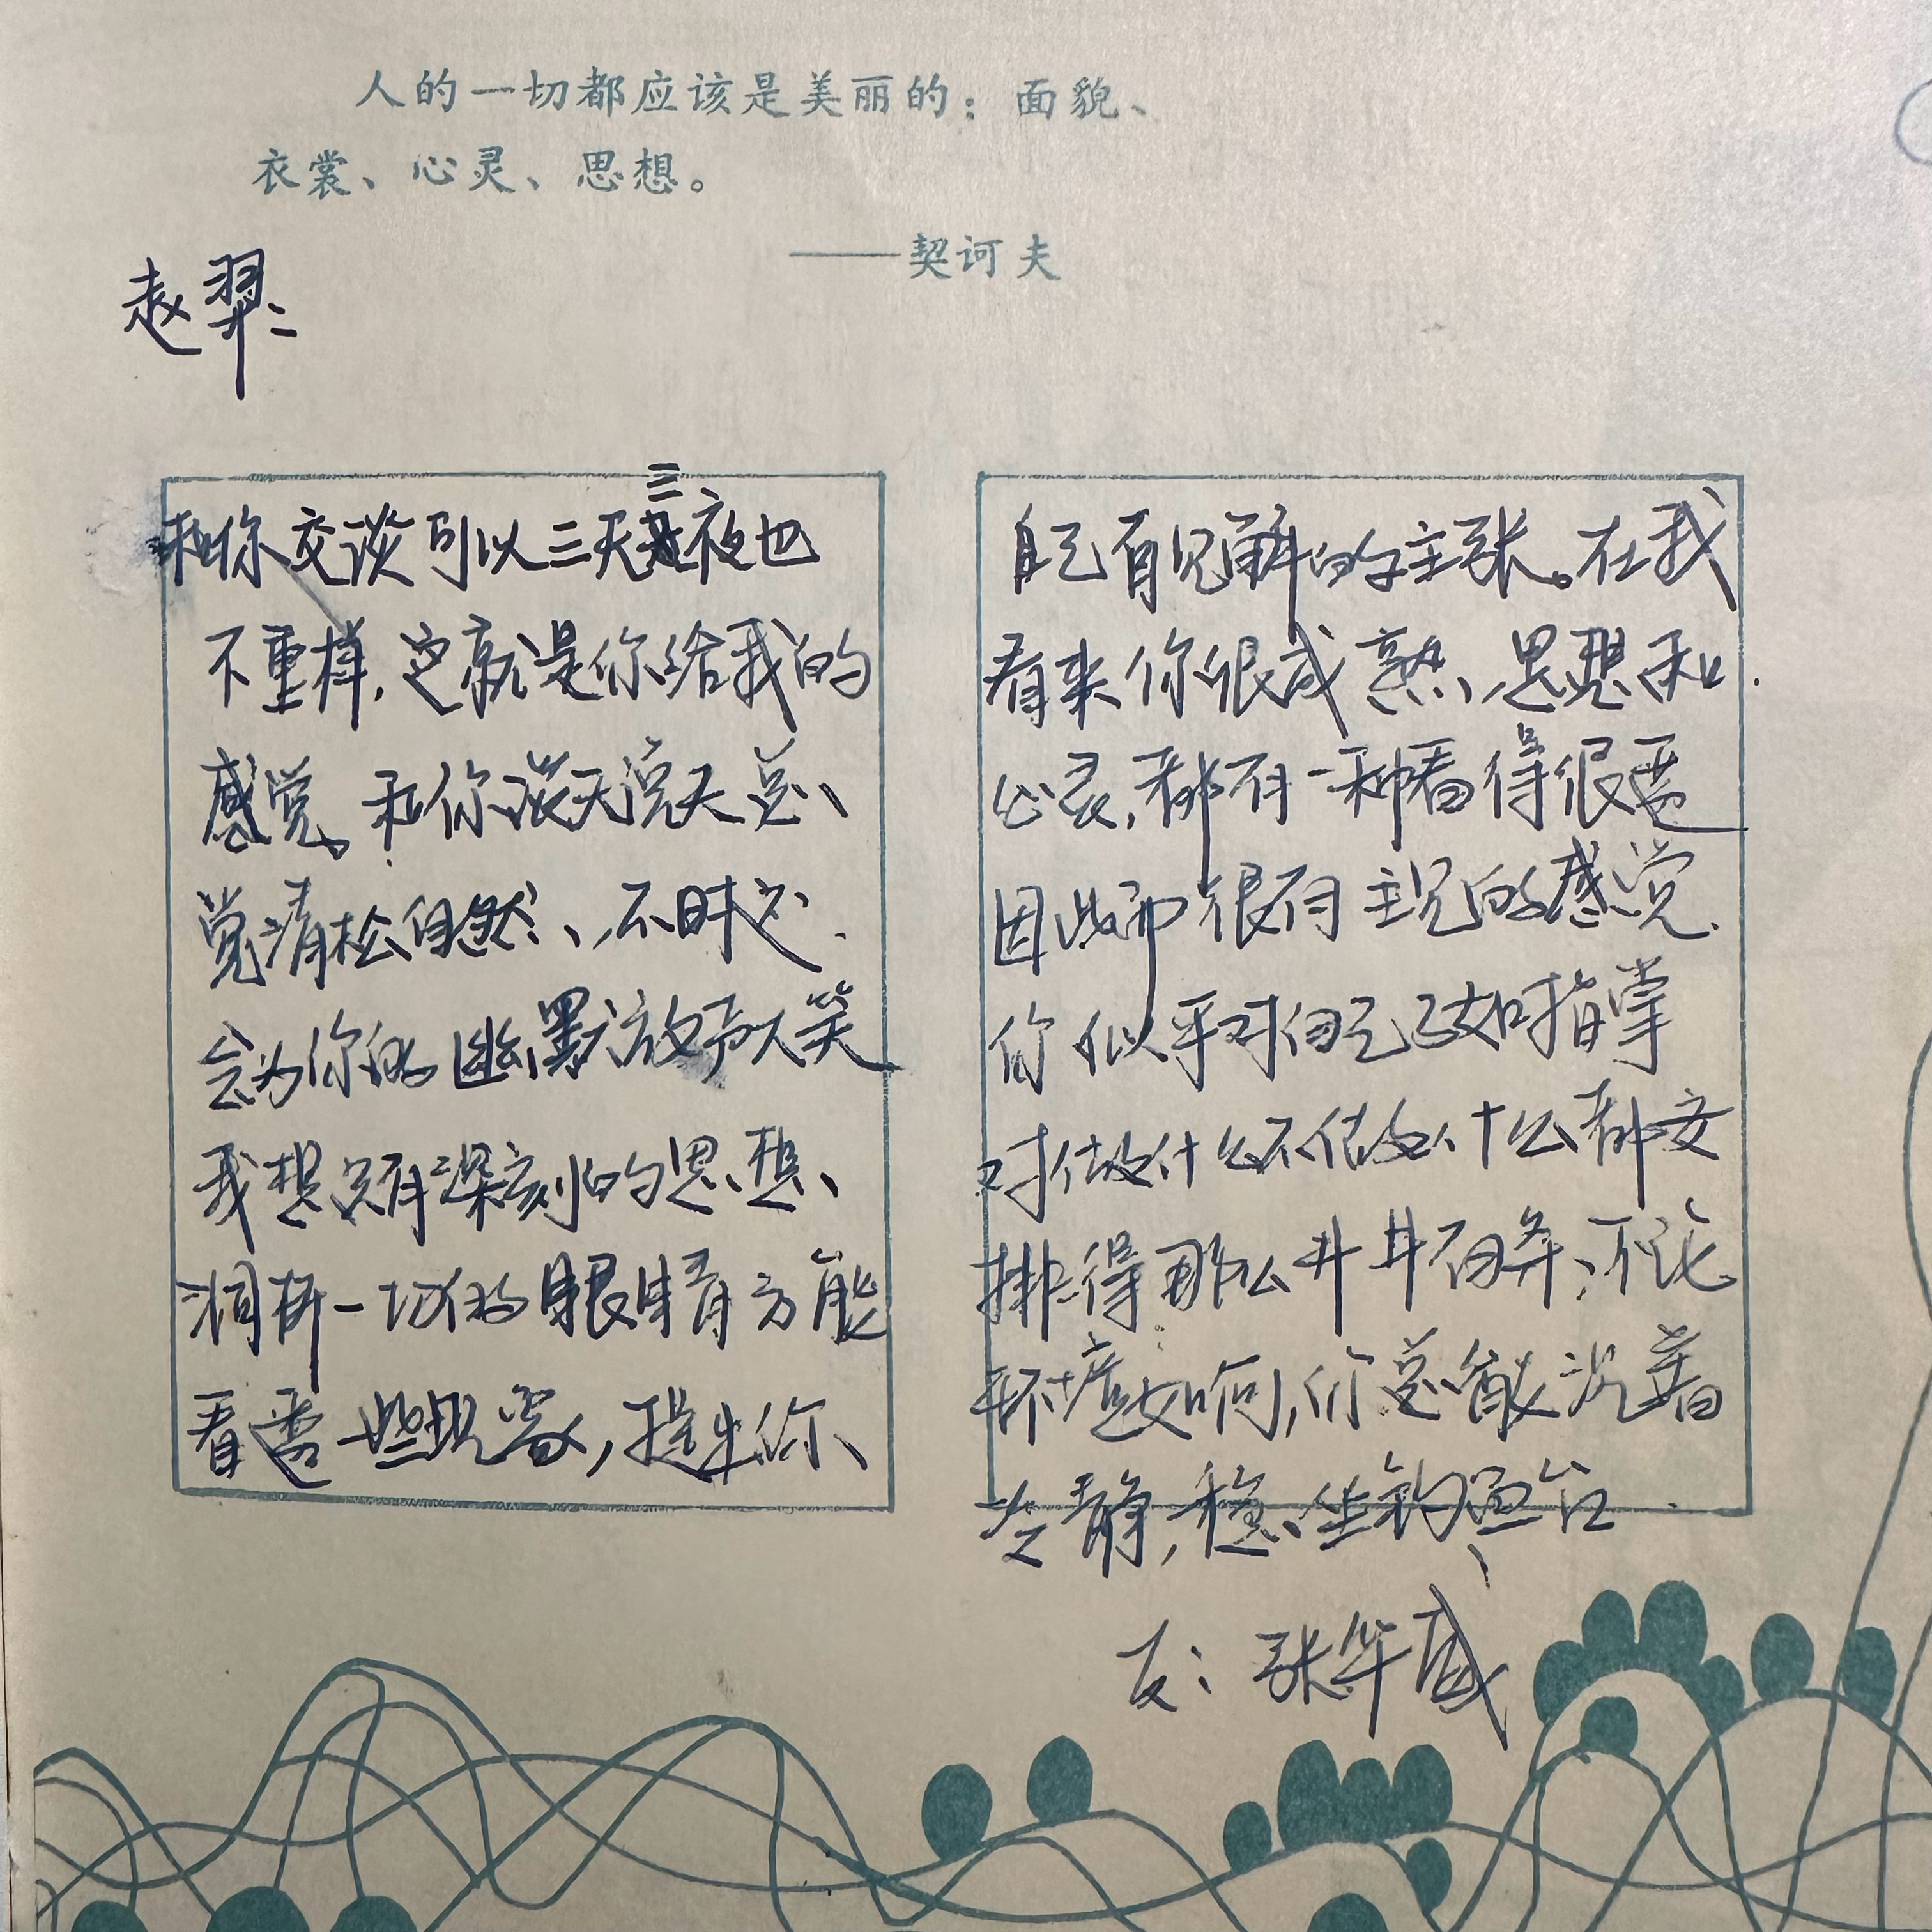 人的一切都应该是美丽的：面貌、
衣裳、心灵、思想。
——契诃夫
赵羿：
和你交谈可以三天三夜也
不重样，这就是你给我的
感觉。和你谈天说天总、
觉清松自然、，不时还
会为你的幽默放声大笑
我想只有深刻的思想、
洞析一切的眼睛方能
看透一些现象，提出你、
自己有见解的主张。在我
看来你很成熟、思想和
心灵，都有一种看得很透
因此而很有主见的感觉.
你似乎对自己了如指掌
对做什么不做什么都安
排得那么井井有条；不论
环境如何，你总能沉着
冷静，稳坐钓鱼台.
友：张华威